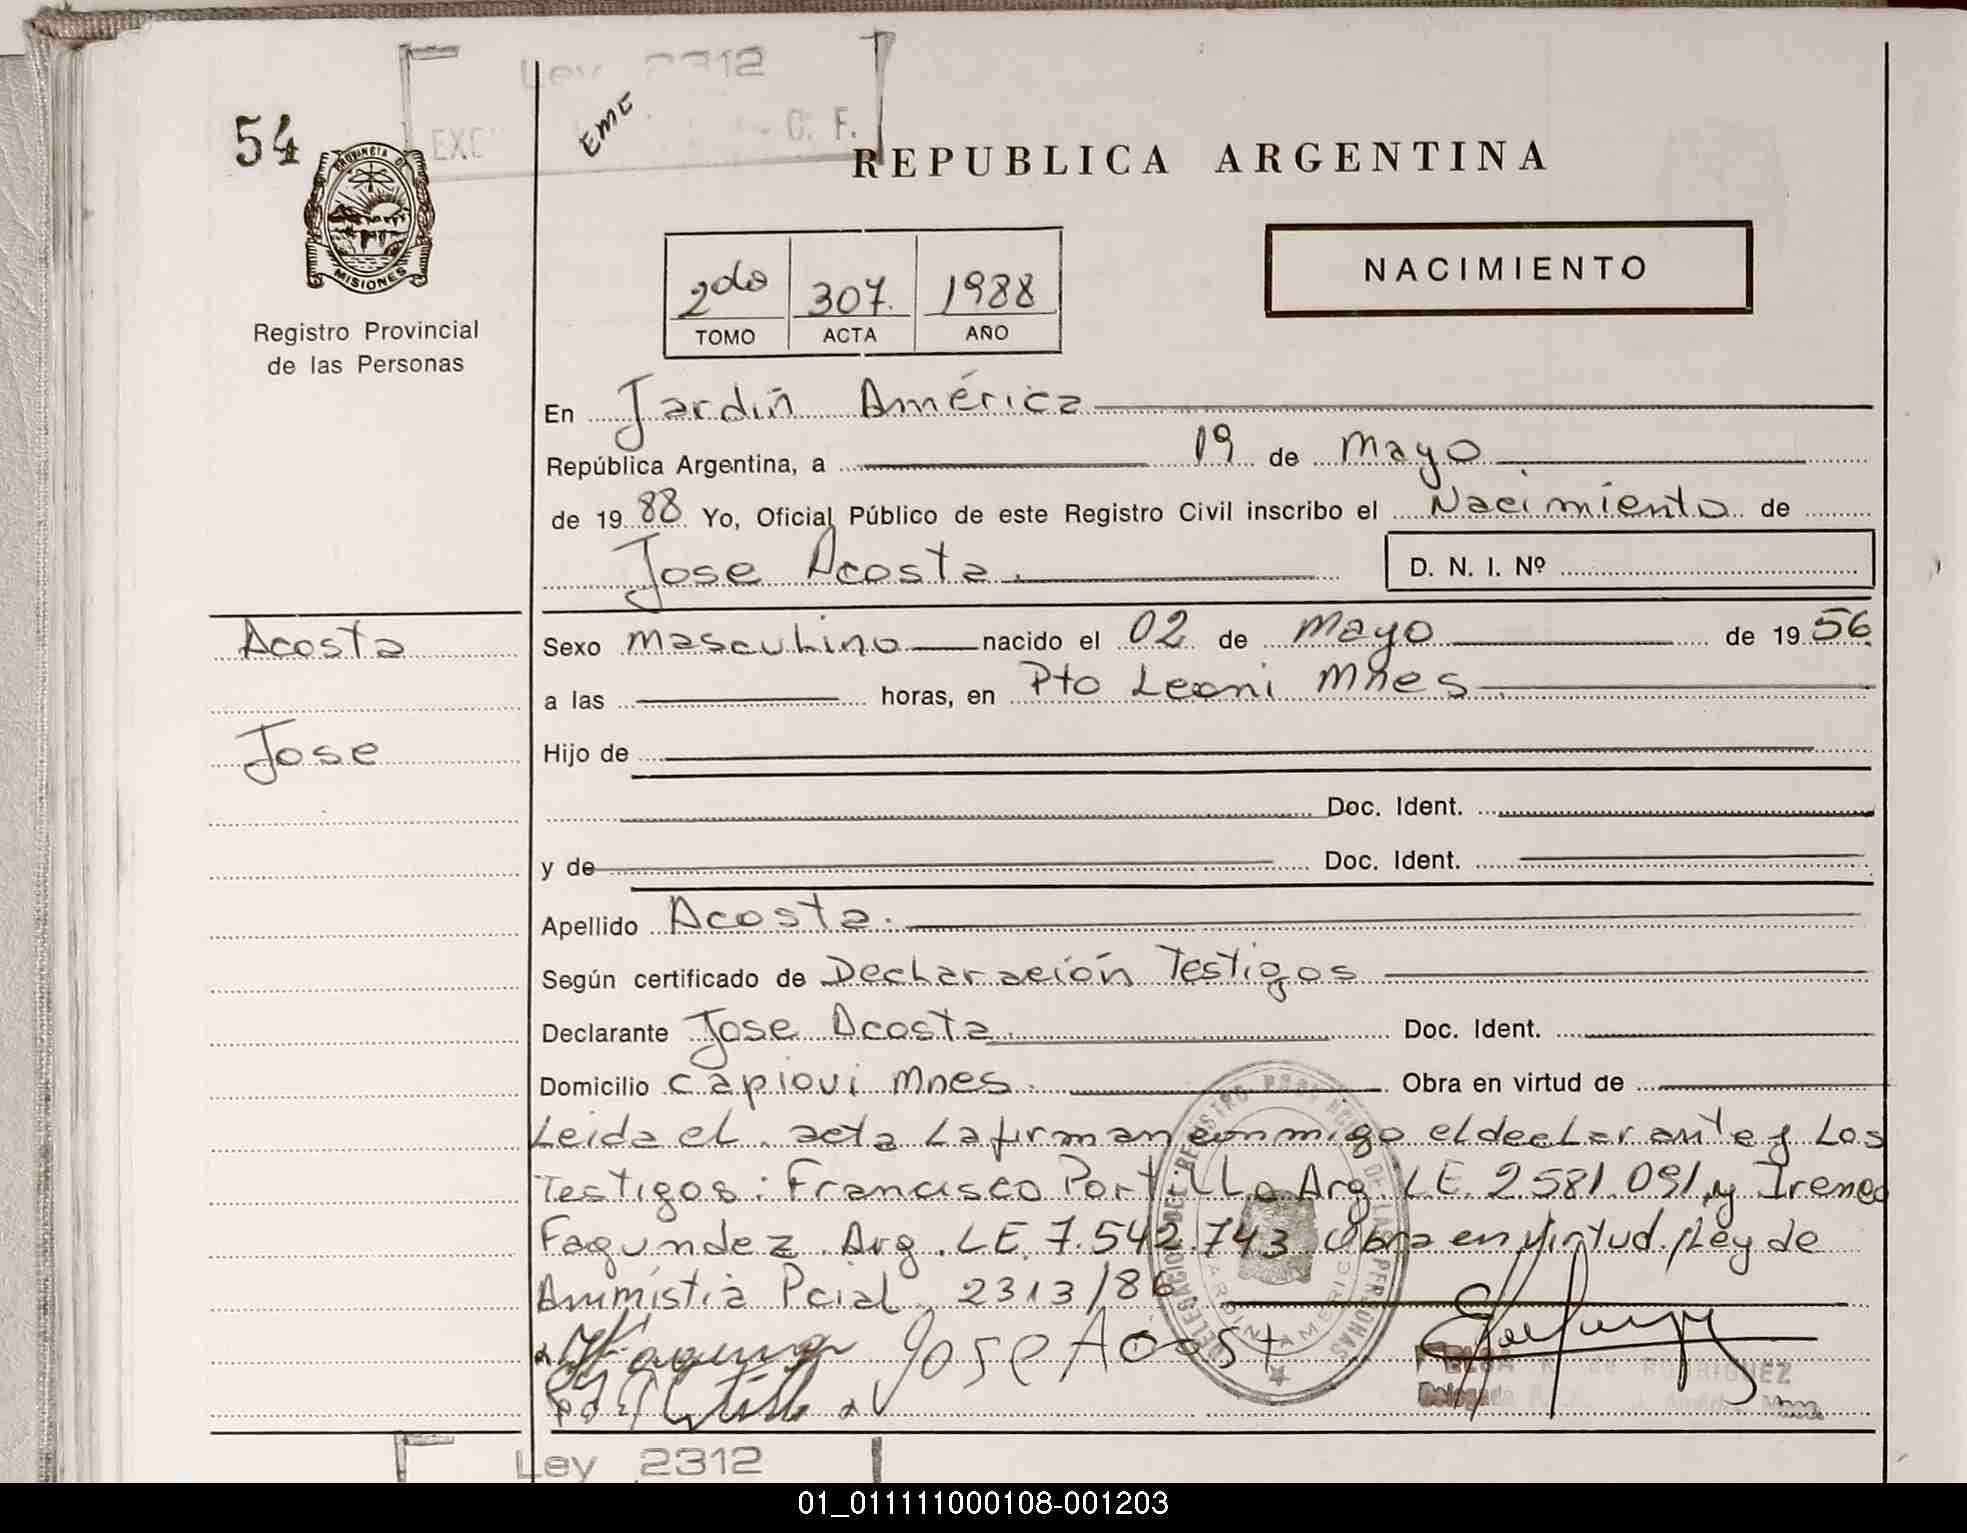 Ley 2312
54
EMC
C. F.
PROVINCIA DE
MISIONES
Registro Provincial
de las Personas
REPUBLICA ARGENTINA
NACIMIENTO
2do 307. 1988
TOMO ACTA AÑO
En Jardín América
República Argentina, a 19 de Mayo
de 19 88 Yo, Oficial Público de este Registro Civil inscribo el Nacimiento de
Jose Acosta.
D. N. I. Nº
Acosta
Jose
Sexo Masculino nacido el 02 de Mayo de 19 56
a las horas, en Pto Leoni Mnes
Hijo de
Doc. Ident.
y de Doc. Ident.
Apellido Acosta.
Según certificado de Declaración Testigos
Declarante Jose Acosta. Doc. Ident.
Domicilio Capioví Mnes. Obra en virtud de
Leida el acta la firman conmigo el declarante y Los
Testigos: Francisco Portillo Arg. LE. 2.581.091 y Ireneo
Fagundez Arg. LE. 7.542.743 Obra en virtud Ley de
Ammistia Pcial 2313/86
Jose Acost
RODRIGUEZ
Delegada
DELEGACION DEL REGISTRO PROVINCIAL DE LAS PERSONAS
JARDIN AMERICA
Ley 2312
01_011111000108-001203